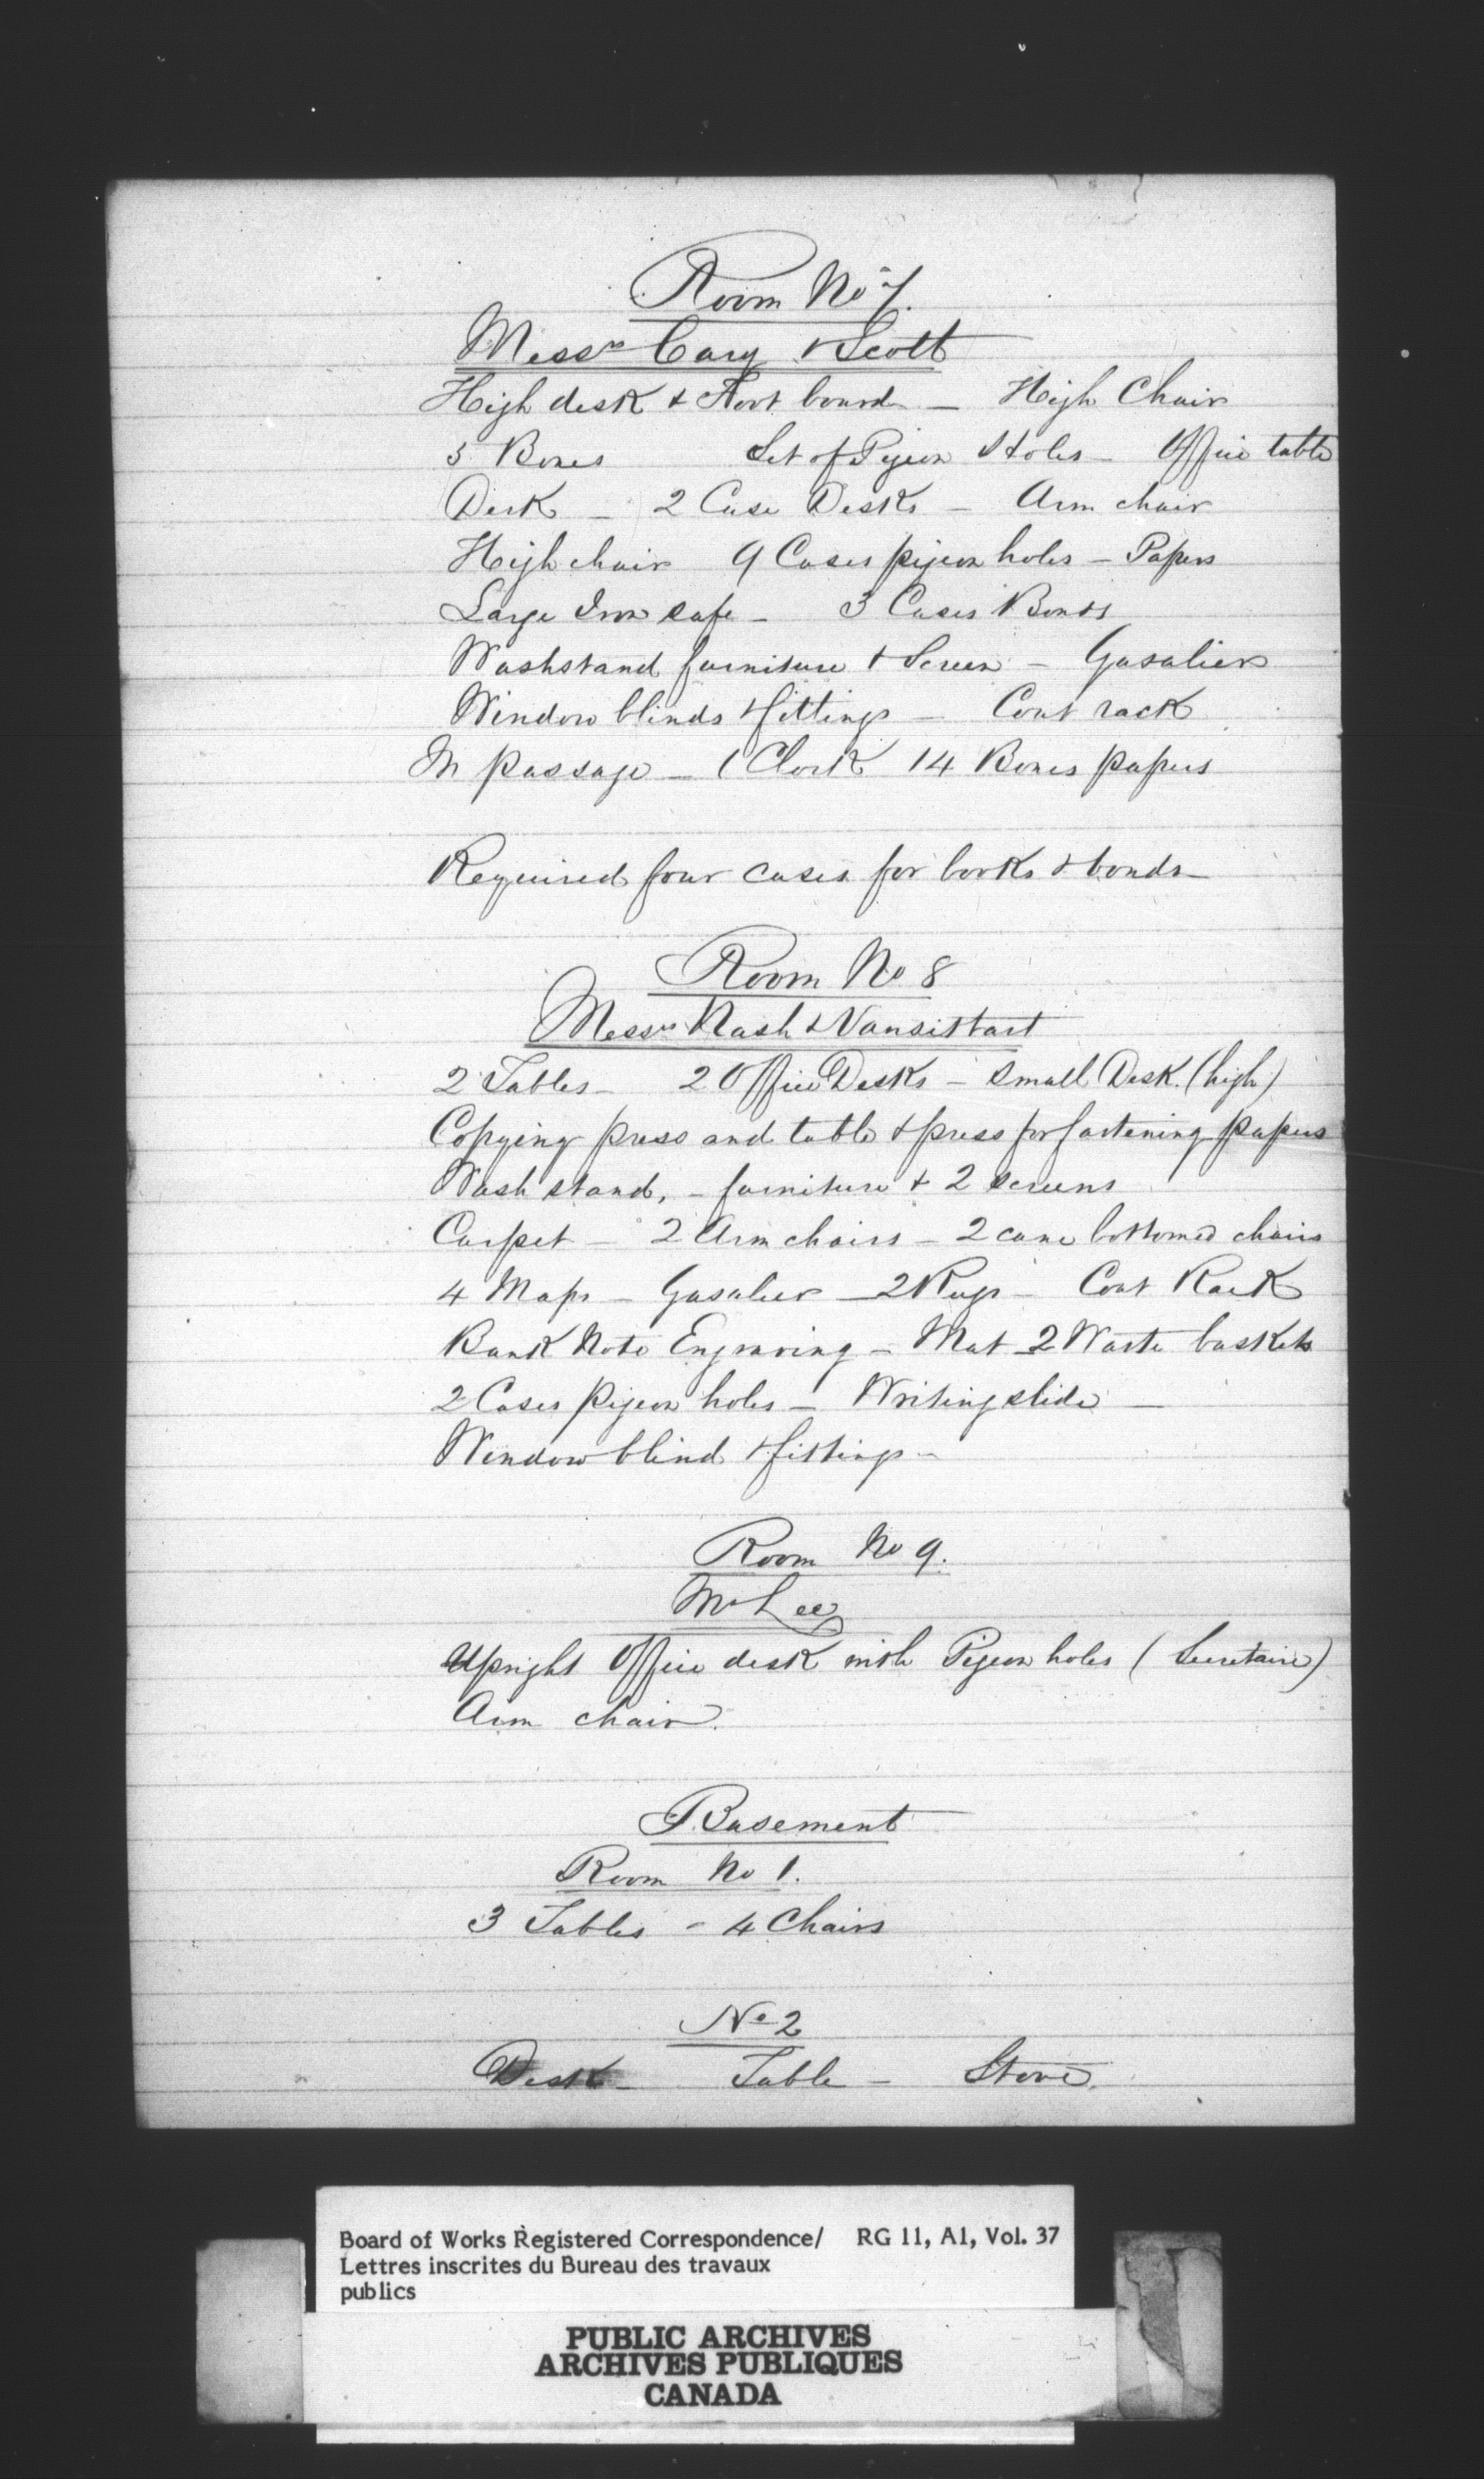 Room No 7.
Messrs Cary & Scott
High desk & Foot board — High Chair
5 Boxes Set of Pigeon Holes — Office table
Desk — 2 Case Desks — Arm chair
High chair 9 Cases pigeon holes — Papers
Large Iron safe — 3 Cases Bonds
Washstand furniture & Screen — Gasalier
Window blinds & fittings — Coat rack
In passage — 1 Clock 14 Boxes papers
Required four cases for books & bonds —
Room No 8
Messrs Nash & Vansittart
2 Tables — 2 Office Desks — Small Desk (high)
Copying press and table & press for fastening papers
Wash stand, — furniture & 2 screens
Carpet — 2 Arm chairs — 2 cane bottomed chairs
4 Maps — Gasalier — 2 Rugs — Coat Rack
Bank Note Engraving — Mat — 2 Waste baskets
2 Cases pigeon holes — Writing slide —
Window blind & fittings —
Room No 9.
Mr Lee
Upright Office desk with Pigeon holes (Secretaire)
Arm chair.
Basement
Room No 1.
3 Tables - 4 Chairs
No 2
Desk — Table — Stove.
Board of Works Registered Correspondence/ RG 11, A1, Vol. 37
Lettres inscrites du Bureau des travaux
publics
PUBLIC ARCHIVES
ARCHIVES PUBLIQUES
CANADA